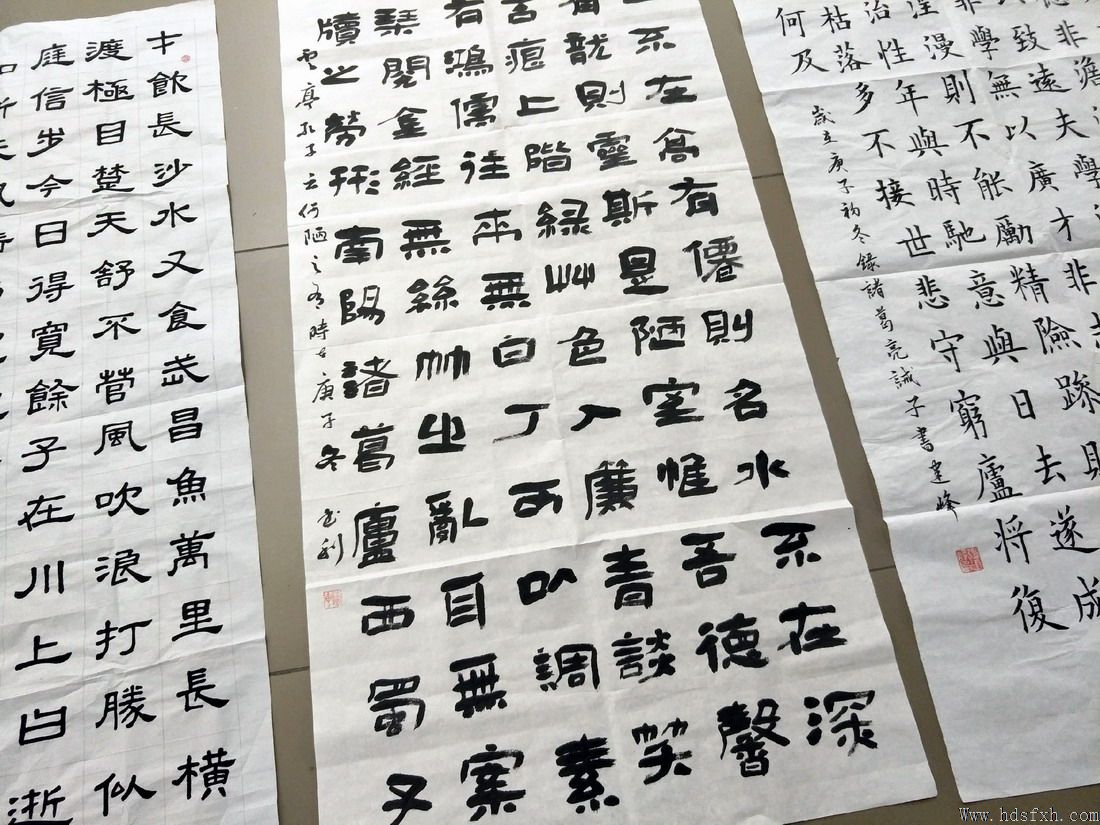 德非澹
致遠夫學
非學無以廣才非志
淫漫則不能勵精險躁則
治性年與時馳意與日去遂成
枯落多不接世悲守窮廬將復
何及
歲在庚子初冬錄諸葛亮誡子書建峰
不在高有僊則名水不在深
有龍則靈斯是陋室惟吾德馨
痕上階綠艸色入簾青談笑
有鴻儒往來無白丁可以調素
琴閱金經無絲竹之亂耳無案
牘之勞形南陽諸葛廬西蜀子
雲亭孔子云何陋之有時在庚子冬
才飲長沙水又食武昌魚萬里長橫
渡極目楚天舒不管風吹浪打勝似
庭信步今日得寬餘子在川上曰逝
如斯夫風
Www.hdsfxh.com